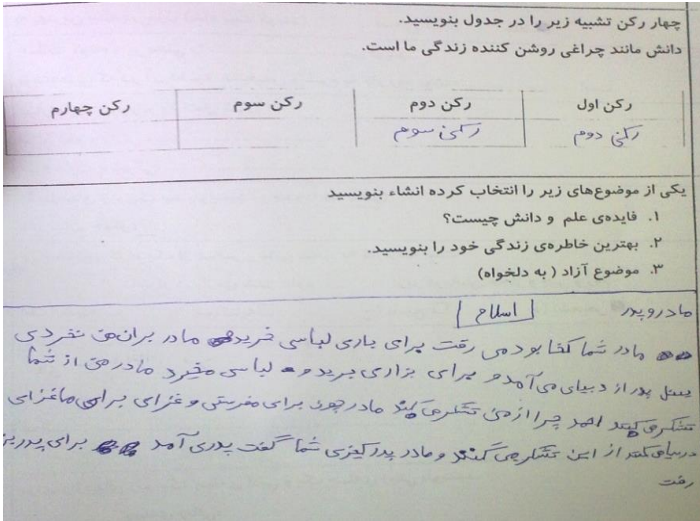 چهار رکن تشبیه زیر را در جدول بنویسید.
دانش مانند چراغی روشن کننده زندگی ما است.
رکن اول رکن دوم رکن سوم رکن چهارم
رکنی دوم رکنی سوم
یکی از موضوع‌های زیر را انتخاب کرده انشاء بنویسید
۱. فایده‌ی علم و دانش چیست؟
۲. بهترین خاطره‌ی زندگی خود را بنویسید.
۳. موضوع آزاد ( به دلخواه)
مادر و پدر اسلام
مادر شما کفا بود می رفت برای بازی لباسی خرید مادر برای من
پدر از دبیای می آمد و برای بزاری برید و لباسی میخرد مادر من از شما
تشکر می کند احمد چرا از من تشکر می کند مادر چون برای مفریتی و غزای برای ما غزای
می کند از این تشکر می کند و مادر پدر کیزی شما گفت پدری آمد برای پدر
رفت